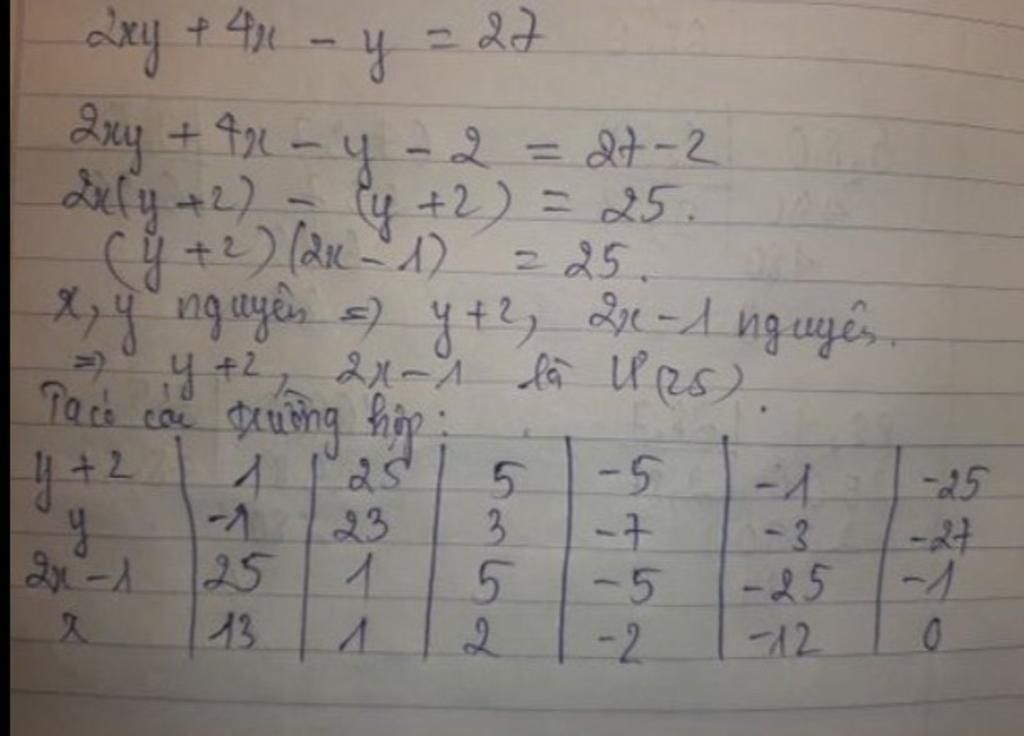 2xy + 4x - y = 27
2xy + 4x - y - 2 = 27 - 2
2x(y + 2) - (y + 2) = 25.
(y + 2)(2x - 1) = 25.
x, y nguyên => y + 2, 2x - 1 nguyên.
=> y + 2, 2x - 1 là Ư(25).
Ta có các trường hợp:
y + 2 | 1 | 25 | 5 | -5 | -1 | -25
y | -1 | 23 | 3 | -7 | -3 | -27
2x - 1 | 25 | 1 | 5 | -5 | -25 | -1
x | 13 | 1 | 2 | -2 | -12 | 0